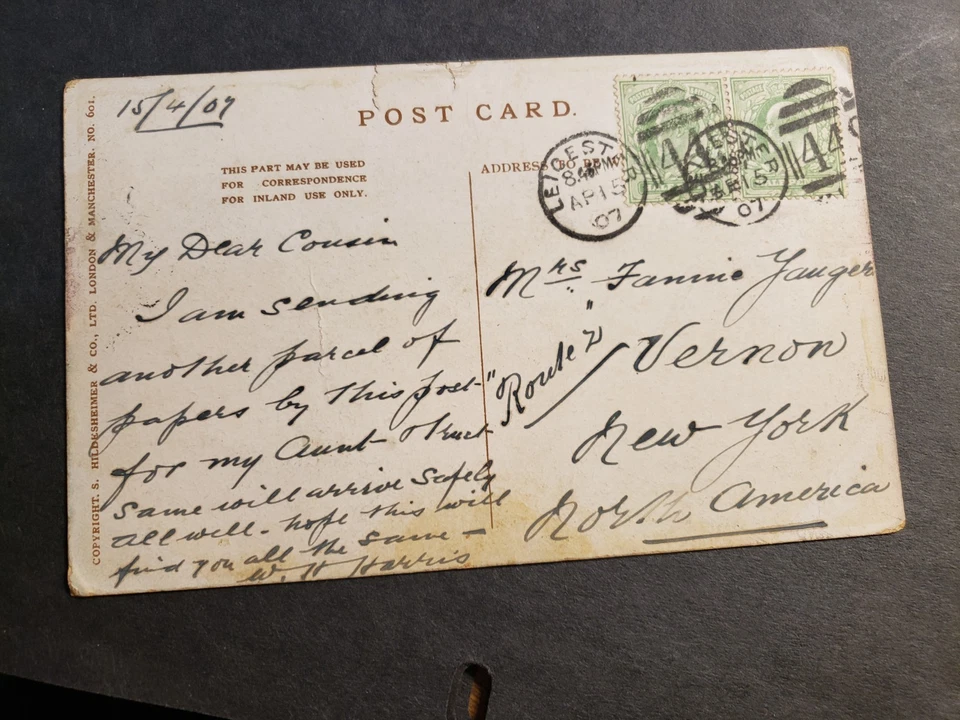 15/4/07
POST CARD.
THIS PART MAY BE USED
FOR CORRESPONDENCE
FOR INLAND USE ONLY.
ADDRESS TO BE
LEICESTER
AP 15
07
44
LEICESTER
15
07
44
My Dear Cousin
I am sending
another parcel of
papers by this post
for my Aunt trust
same will arrive safely
all well - hope this will
find you all the same -
W. H Harris
Mrs Fannie Yauger
"Route 2"
Vernon
New York
North America
COPYRIGHT. S. HILDESHEIMER & CO., LTD. LONDON & MANCHESTER. NO. 601.